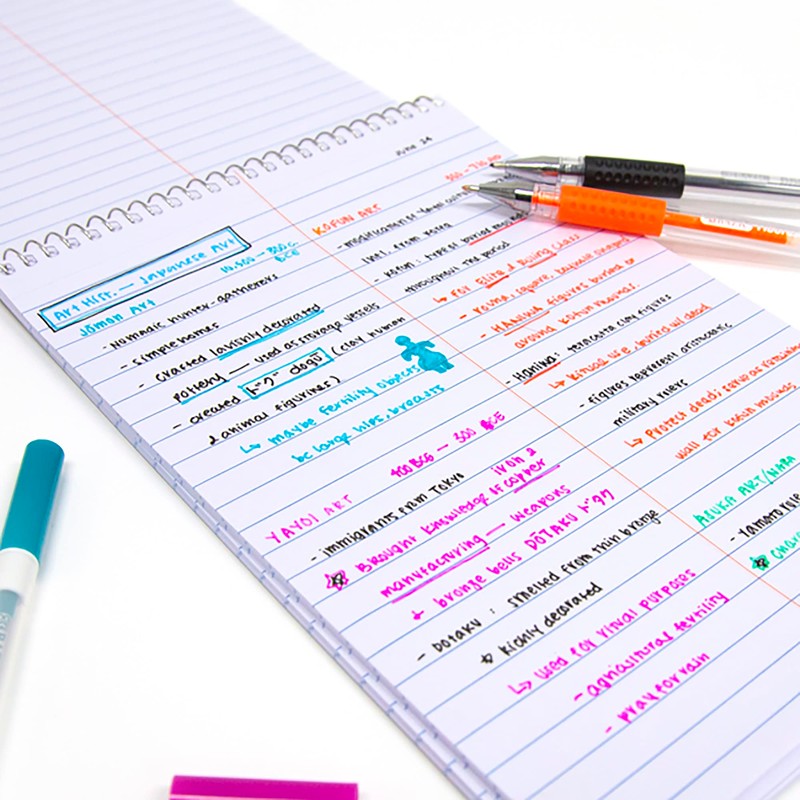 June 24
Art Hist. — Japanese Art
10,500 - 300 BCE
Jōman Art
- nomadic hunter-gatherers
- simple homes
- crafted lavishly decorated
pottery — used as storage vessels
- created ドグ dogū (clay human
& animal figurines)
↳ maybe fertility objects
bc large hips, breasts
YAYOI ART
400 BCE — 300 CE
- immigrants from Tokyo
Brought knowledge of copper
iron &
manufacturing — weapons
& bronze bells DŌTAKU
- DŌTAKU : smelted from thin bronze
richly decorated
↳ used for ritual purposes
- agricultural fertility
- pray for rain
KOFUN ART
infl. from
- Kofun : type of burial
throughout the period
↳ For Elite & Ruling Class
- Round, square,
- HANIWA figures buried on
around kofun mound.
- Haniwa: terracotta clay figures
↳ Ritual use, buried w/ dead
- figures represent aristocratic
military rulers
↳ Protect dead; serve as
wall for kofun mounds
ASUKA ART/NARA
- Yamato